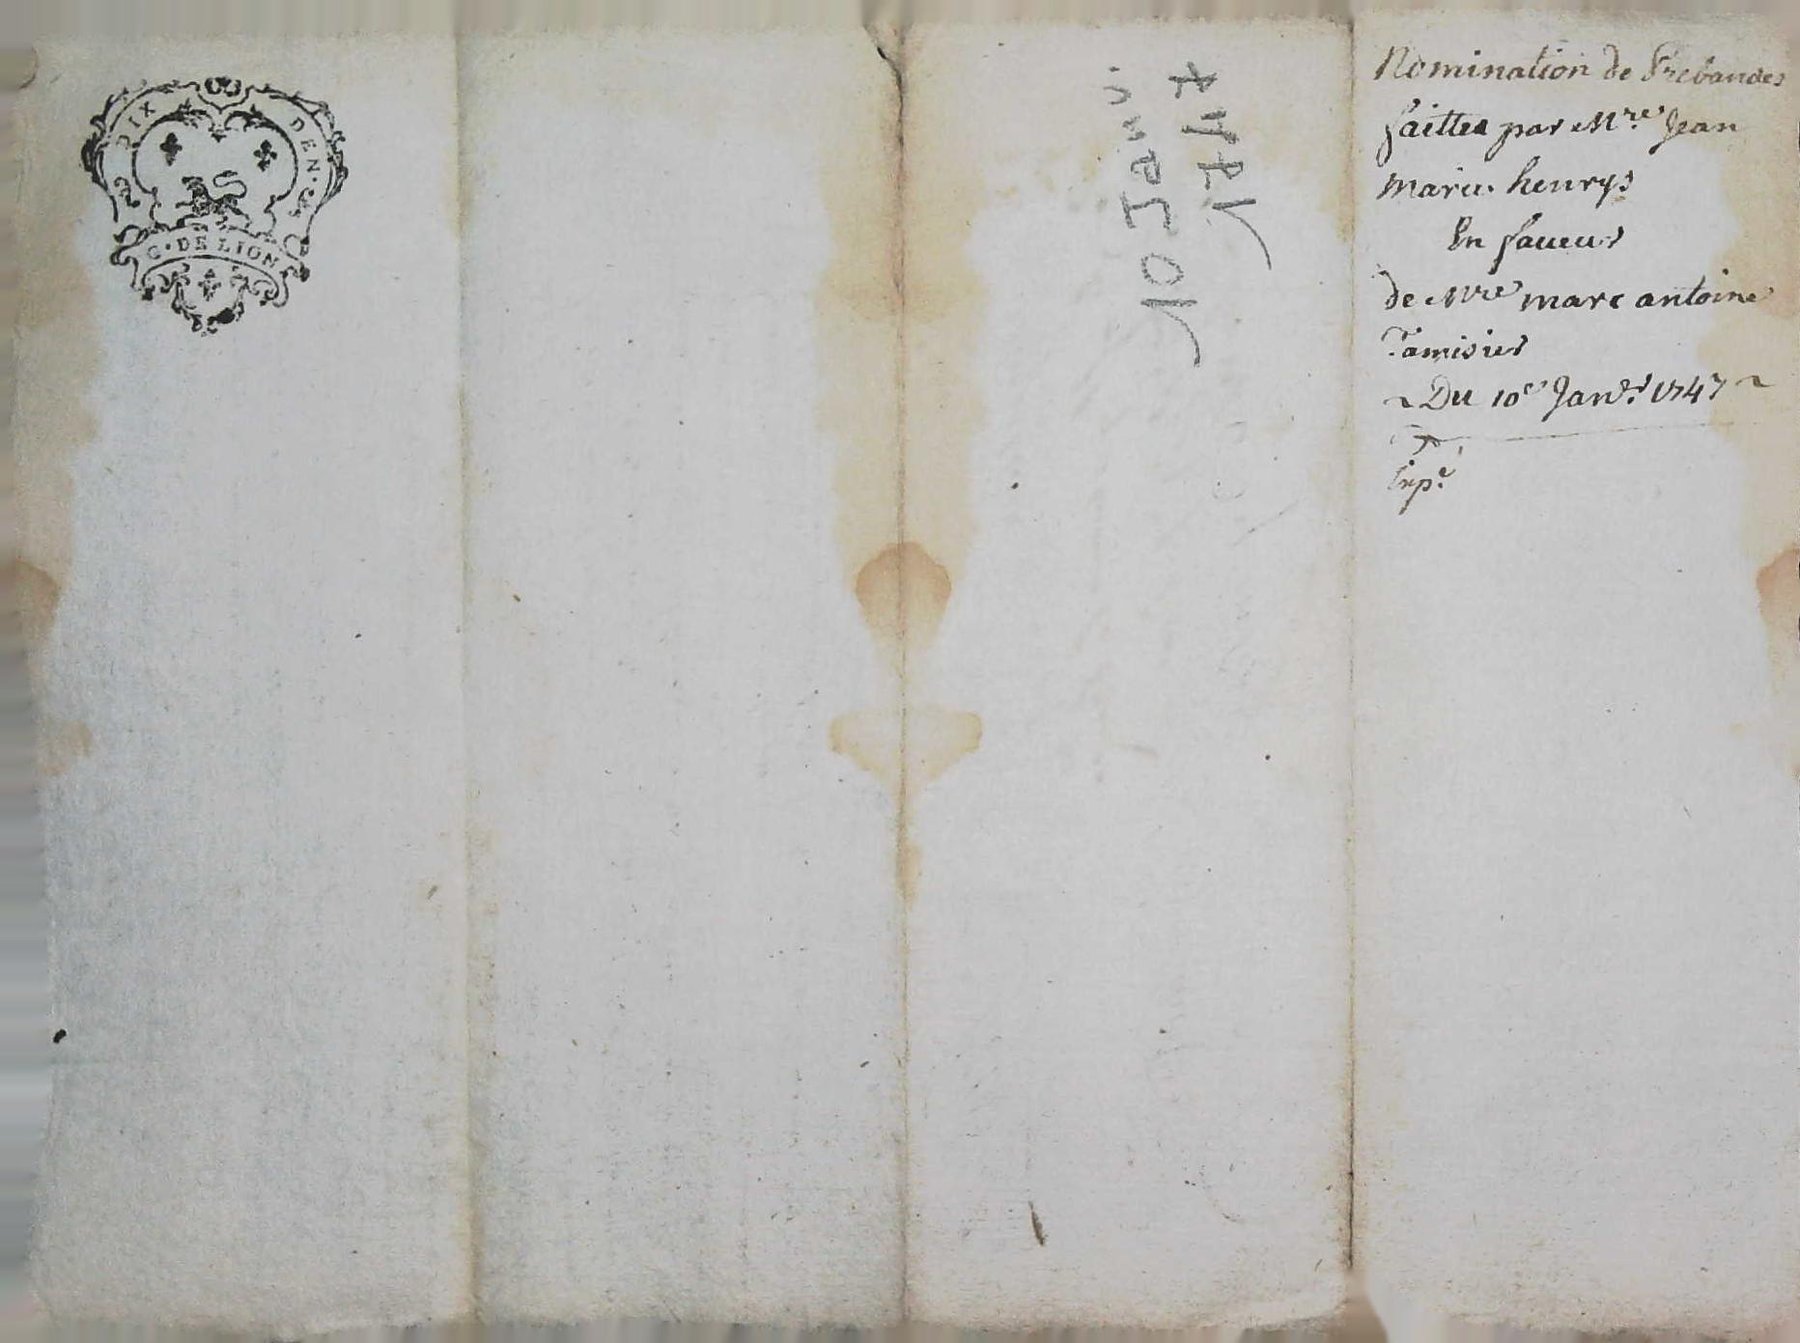 DIX DEN.
G. DE LION
10 Janv.
1747
Nomination de Prebandes
faittes par Mre Jean
Marie henrys
En faueur
de Mre marc antoine
Tamisier
~ Du 10e Janvr. 1747 ~
Expe